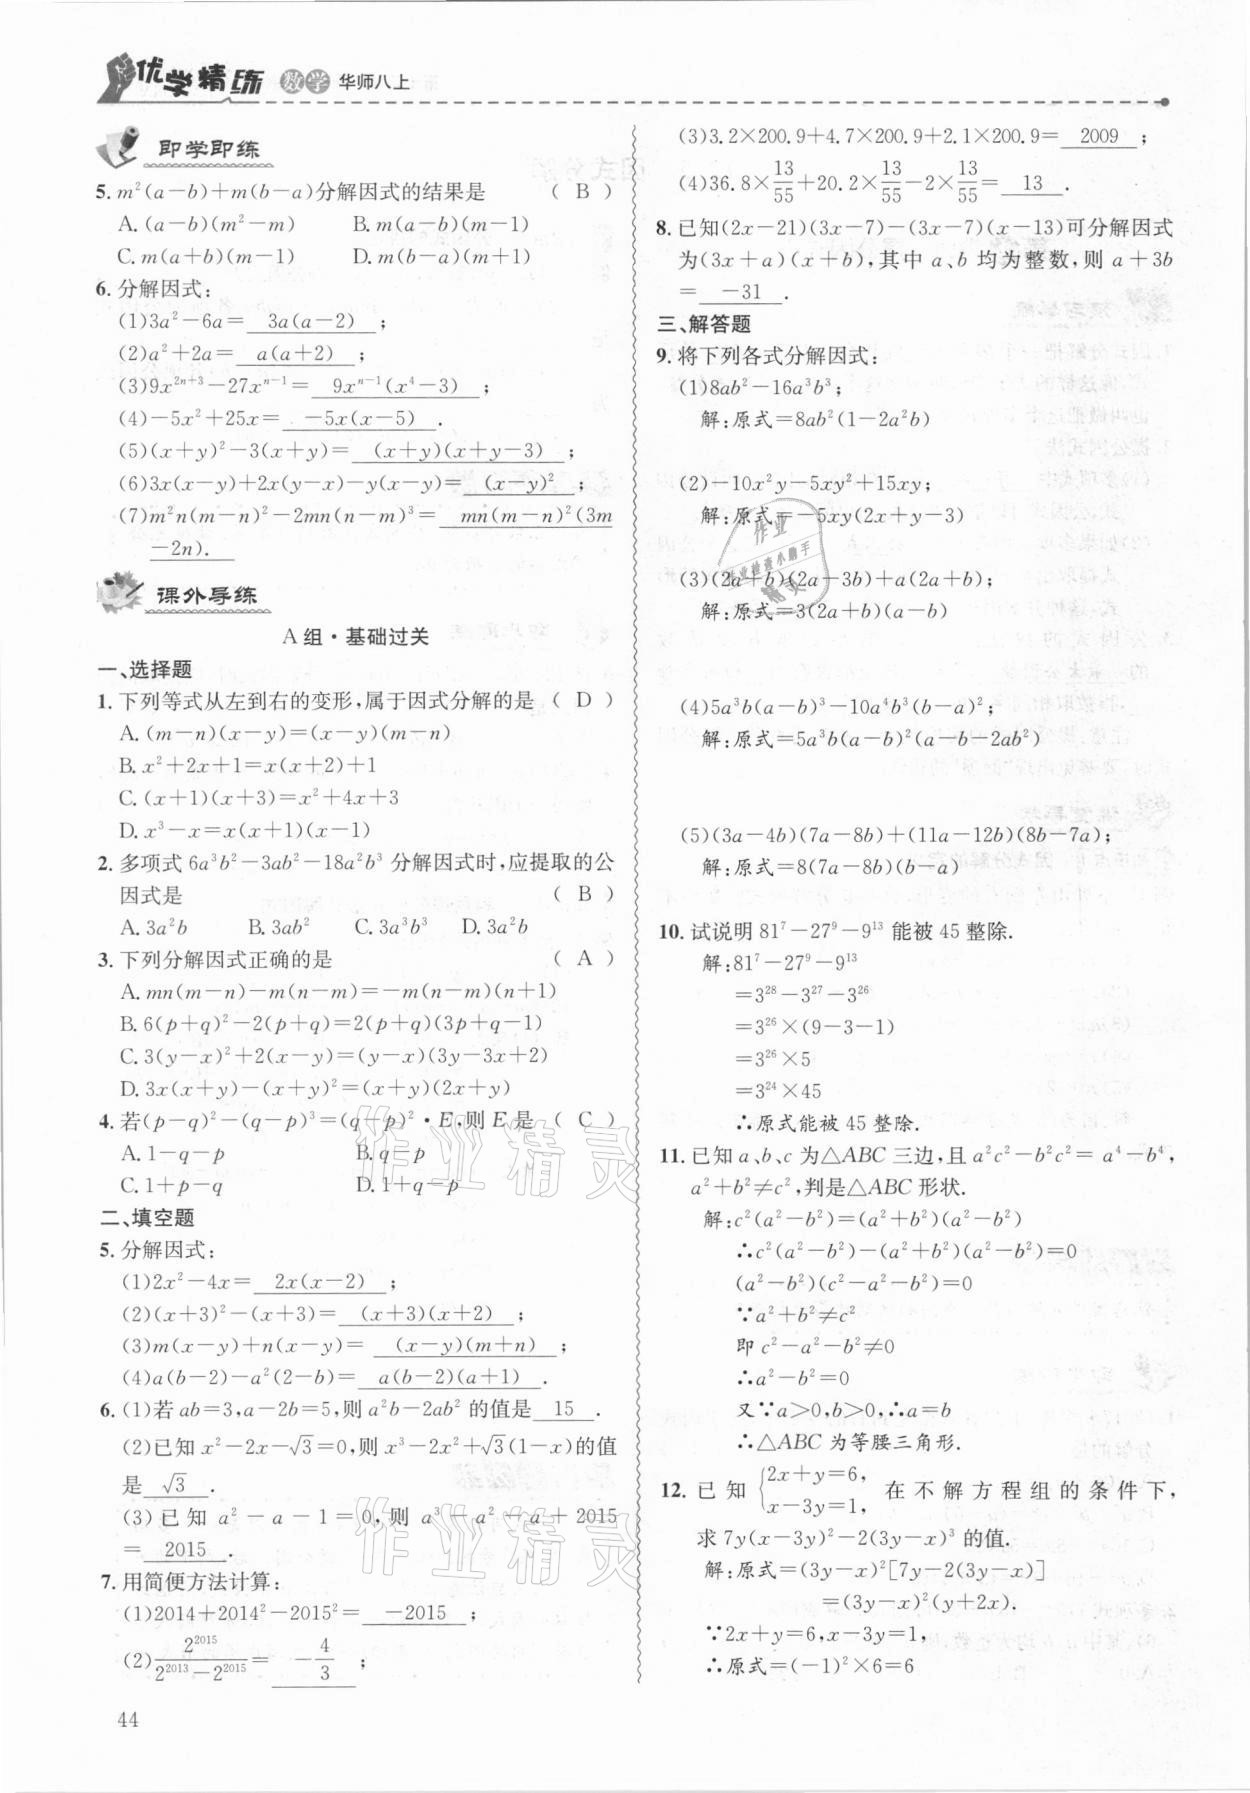 优学精练 数学 华师八上
即学即练
5. m²(a－b)＋m(b－a)分解因式的结果是 （ B ）
A. (a－b)(m²－m) B. m(a－b)(m－1)
C. m(a＋b)(m－1) D. m(b－a)(m＋1)
6. 分解因式:
(1)3a²－6a＝ 3a(a－2) ;
(2)a²＋2a＝ a(a＋2) ;
(3)9x²ⁿ⁺³－27xⁿ⁻¹＝ 9xⁿ⁻¹(x⁴－3) ;
(4)－5x²＋25x＝ －5x(x－5) .
(5)(x＋y)²－3(x＋y)＝ (x＋y)(x＋y－3) ;
(6)3x(x－y)＋2x(y－x)－y(x－y)＝ (x－y)² ;
(7)m²n(m－n)²－2mn(n－m)³＝ mn(m－n)²(3m
－2n).
课外导练
A 组·基础过关
一、选择题
1. 下列等式从左到右的变形,属于因式分解的是 （ D ）
A. (m－n)(x－y)＝(x－y)(m－n)
B. x²＋2x＋1＝x(x＋2)＋1
C. (x＋1)(x＋3)＝x²＋4x＋3
D. x³－x＝x(x＋1)(x－1)
2. 多项式 6a³b²－3ab²－18a²b³ 分解因式时,应提取的公
因式是 （ B ）
A. 3a²b B. 3ab² C. 3a³b³ D. 3a²b
3. 下列分解因式正确的是 （ A ）
A. mn(m－n)－m(n－m)＝－m(n－m)(n＋1)
B. 6(p＋q)²－2(p＋q)＝2(p＋q)(3p＋q－1)
C. 3(y－x)²＋2(x－y)＝(y－x)(3y－3x＋2)
D. 3x(x＋y)－(x＋y)²＝(x＋y)(2x＋y)
4. 若(p－q)²－(q－p)³＝(q－p)²·E,则 E 是 （ C ）
A. 1－q－p B. q－p
C. 1＋p－q D. 1＋q－p
二、填空题
5. 分解因式:
(1)2x²－4x＝ 2x(x－2) ;
(2)(x＋3)²－(x＋3)＝ (x＋3)(x＋2) ;
(3)m(x－y)＋n(x－y)＝ (x－y)(m＋n) ;
(4)a(b－2)－a²(2－b)＝ a(b－2)(a＋1) .
6. (1)若 ab＝3,a－2b＝5,则 a²b－2ab² 的值是 15 .
(2)已知 x²－2x－√3＝0,则 x³－2x²＋√3(1－x)的值
是 √3 .
(3)已知 a²－a－1＝0,则 a³－a²－a＋2015
＝ 2015 .
7. 用简便方法计算:
(1)2014＋2014²－2015²＝ －2015 ;
(2)2²⁰¹⁵/(2²⁰¹³－2²⁰¹⁵)＝ －4/3 ;
44
(3)3.2×200.9＋4.7×200.9＋2.1×200.9＝ 2009 ;
(4)36.8×13/55＋20.2×13/55－2×13/55＝ 13 .
8. 已知(2x－21)(3x－7)－(3x－7)(x－13)可分解因式
为(3x＋a)(x＋b),其中 a、b 均为整数,则 a＋3b
＝ －31 .
三、解答题
9. 将下列各式分解因式:
(1)8ab²－16a³b³;
解:原式＝8ab²(1－2a²b)
(2)－10x²y－5xy²＋15xy;
解:原式＝－5xy(2x＋y－3)
(3)(2a＋b)(2a－3b)＋a(2a＋b);
解:原式＝3(2a＋b)(a－b)
(4)5a³b(a－b)³－10a⁴b³(b－a)²;
解:原式＝5a³b(a－b)²(a－b－2ab²)
(5)(3a－4b)(7a－8b)＋(11a－12b)(8b－7a);
解:原式＝8(7a－8b)(b－a)
10. 试说明 81⁷－27⁹－9¹³ 能被 45 整除.
解:81⁷－27⁹－9¹³
＝3²⁸－3²⁷－3²⁶
＝3²⁶×(9－3－1)
＝3²⁶×5
＝3²⁴×45
∴原式能被 45 整除.
11. 已知 a、b、c 为△ABC 三边,且 a²c²－b²c²＝ a⁴－b⁴,
a²＋b²≠c²,判是△ABC 形状.
解:c²(a²－b²)＝(a²＋b²)(a²－b²)
∴c²(a²－b²)－(a²＋b²)(a²－b²)＝0
(a²－b²)(c²－a²－b²)＝0
∵a²＋b²≠c²
即 c²－a²－b²≠0
∴a²－b²＝0
又∵a＞0,b＞0,∴a＝b
∴△ABC 为等腰三角形.
12. 已知{2x＋y＝6, x－3y＝1, 在不解方程组的条件下,
求 7y(x－3y)²－2(3y－x)³ 的值.
解:原式＝(3y－x)²[7y－2(3y－x)]
＝(3y－x)²(y＋2x).
∵2x＋y＝6,x－3y＝1,
∴原式＝(－1)²×6＝6
作业精灵
作业精灵
作业
作业检查小助手
精灵